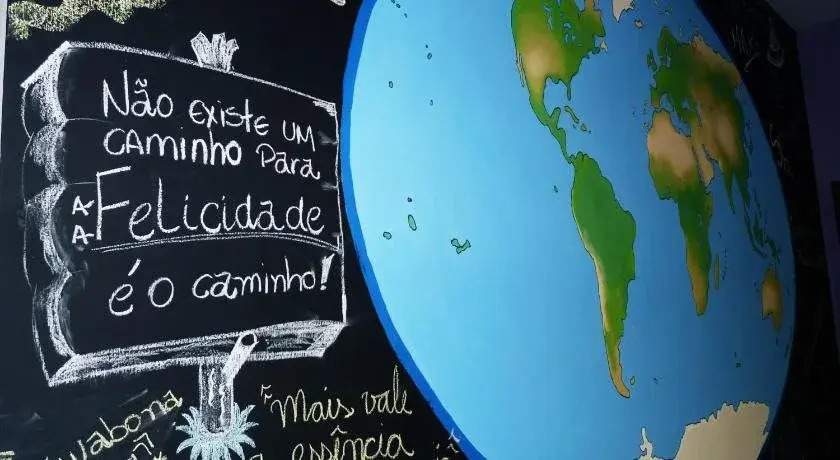 Não existe um
caminho para
A
A Felicidade
é o caminho!
"Mais vale
a essência